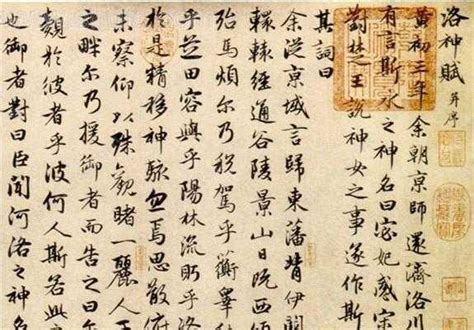 洛神賦 并序
黄初三年余朝京師還濟洛川
有言斯水之神名曰宓妃感宋
對楚王說神女之事遂作斯
其詞曰
余從京域言歸東藩背伊闕
轘轅經通谷陵景山日既西傾
殆馬煩尔乃稅駕乎蘅皋
乎芝田容與乎陽林流眄乎
於是精移神駭忽焉思散俯
未察仰以殊觀睹一麗人
之畔尔乃援御者而告之曰尔
覿於彼者乎彼何人斯若此
也御者對曰臣聞河洛之神名